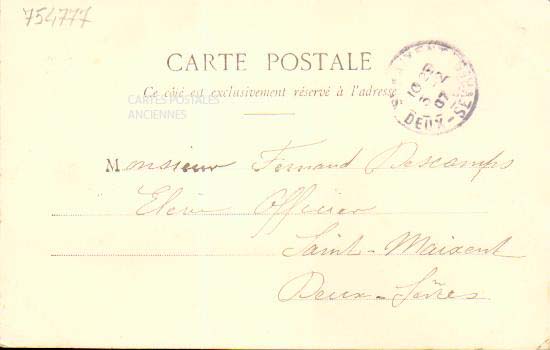 754777
CARTE POSTALE
Ce côté est exclusivement réservé à l'adresse
CARTES POSTALES
ANCIENNES
DEUX-SÈVRES
Monsieur Fernand Descamps
Elève Officier
Saint-Maixent
Deux-Sèvres